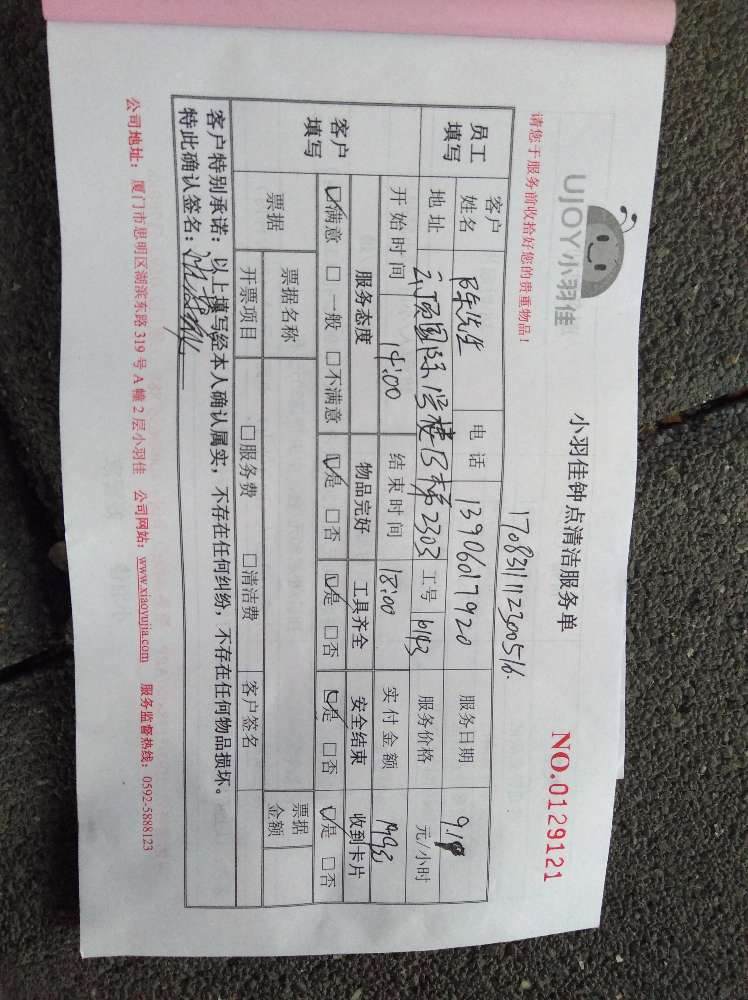 UJOY小羽佳
小羽佳钟点清洁服务单
NO.0129121
请您于服务前收拾好您的贵重物品!
17083111230056
员工填写
客户姓名 陈先生 电话 13906017920 服务日期 9.1
地址 2303 工号 服务价格 元/小时
开始时间 14:00 结束时间 18:00 实付金额
客户填写
服务态度 物品完好 工具齐全 安全结束 收到卡片
☑满意 □一般 □不满意 ☑是 □否 ☑是 □否 ☑是 □否 ☑是 □否
票据 票据名称 票据金额
开票项目 □服务费 □清洁费 客户签名
客户特别承诺:以上填写经本人确认属实,不存在任何纠纷,不存在任何物品损坏。
特此确认签名:
公司地址:厦门市思明区湖滨东路319号A幢2层小羽佳 公司网站:www.xiaoyujia.com 服务监督热线:0592-5888123